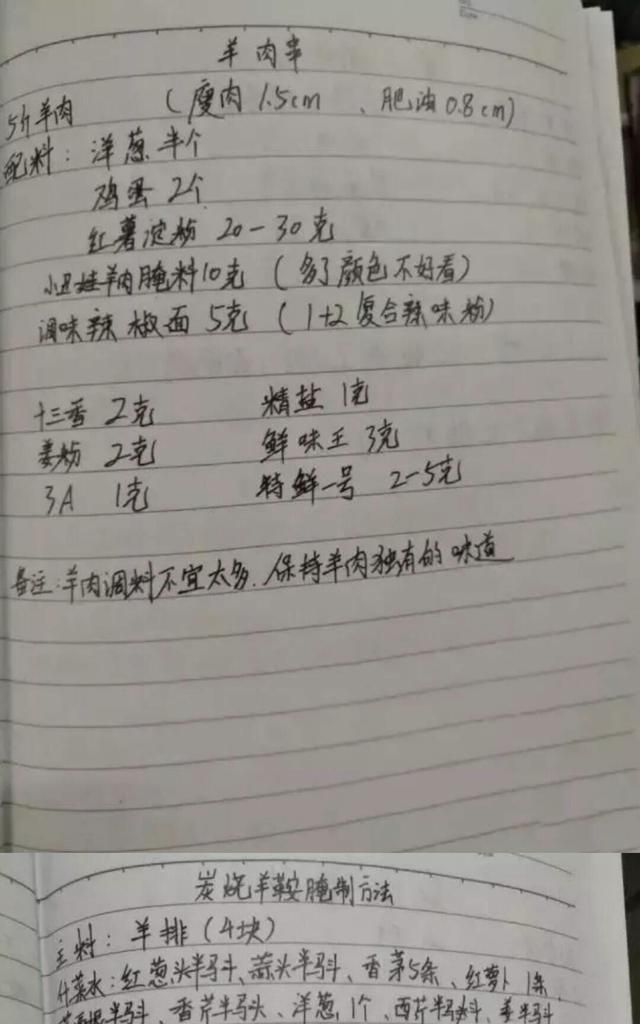 羊肉串
5斤羊肉 (瘦肉1.5cm、肥油0.8cm)
配料:洋葱半个
鸡蛋2个
红薯淀粉 20-30克
小丑娃羊肉腌料10克(多了颜色不好看)
调味辣椒面5克(1+2复合辣味粉)
十三香 2克 精盐 1克
姜粉 2克 鲜味王 3克
3A 1克 特鲜一号 2-5克
备注:羊肉调料不宜太多.保持羊肉独有的味道
炭烧羊鞍腌制方法
主料:羊排(4块)
什菜水:红葱头半马斗、蒜头半马斗、香茅5条、红萝卜1条、
半马斗、香芹半马头、洋葱1个、西芹半马斗、姜半马斗